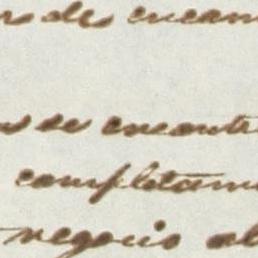 de encam
de encont
completam
negocio al